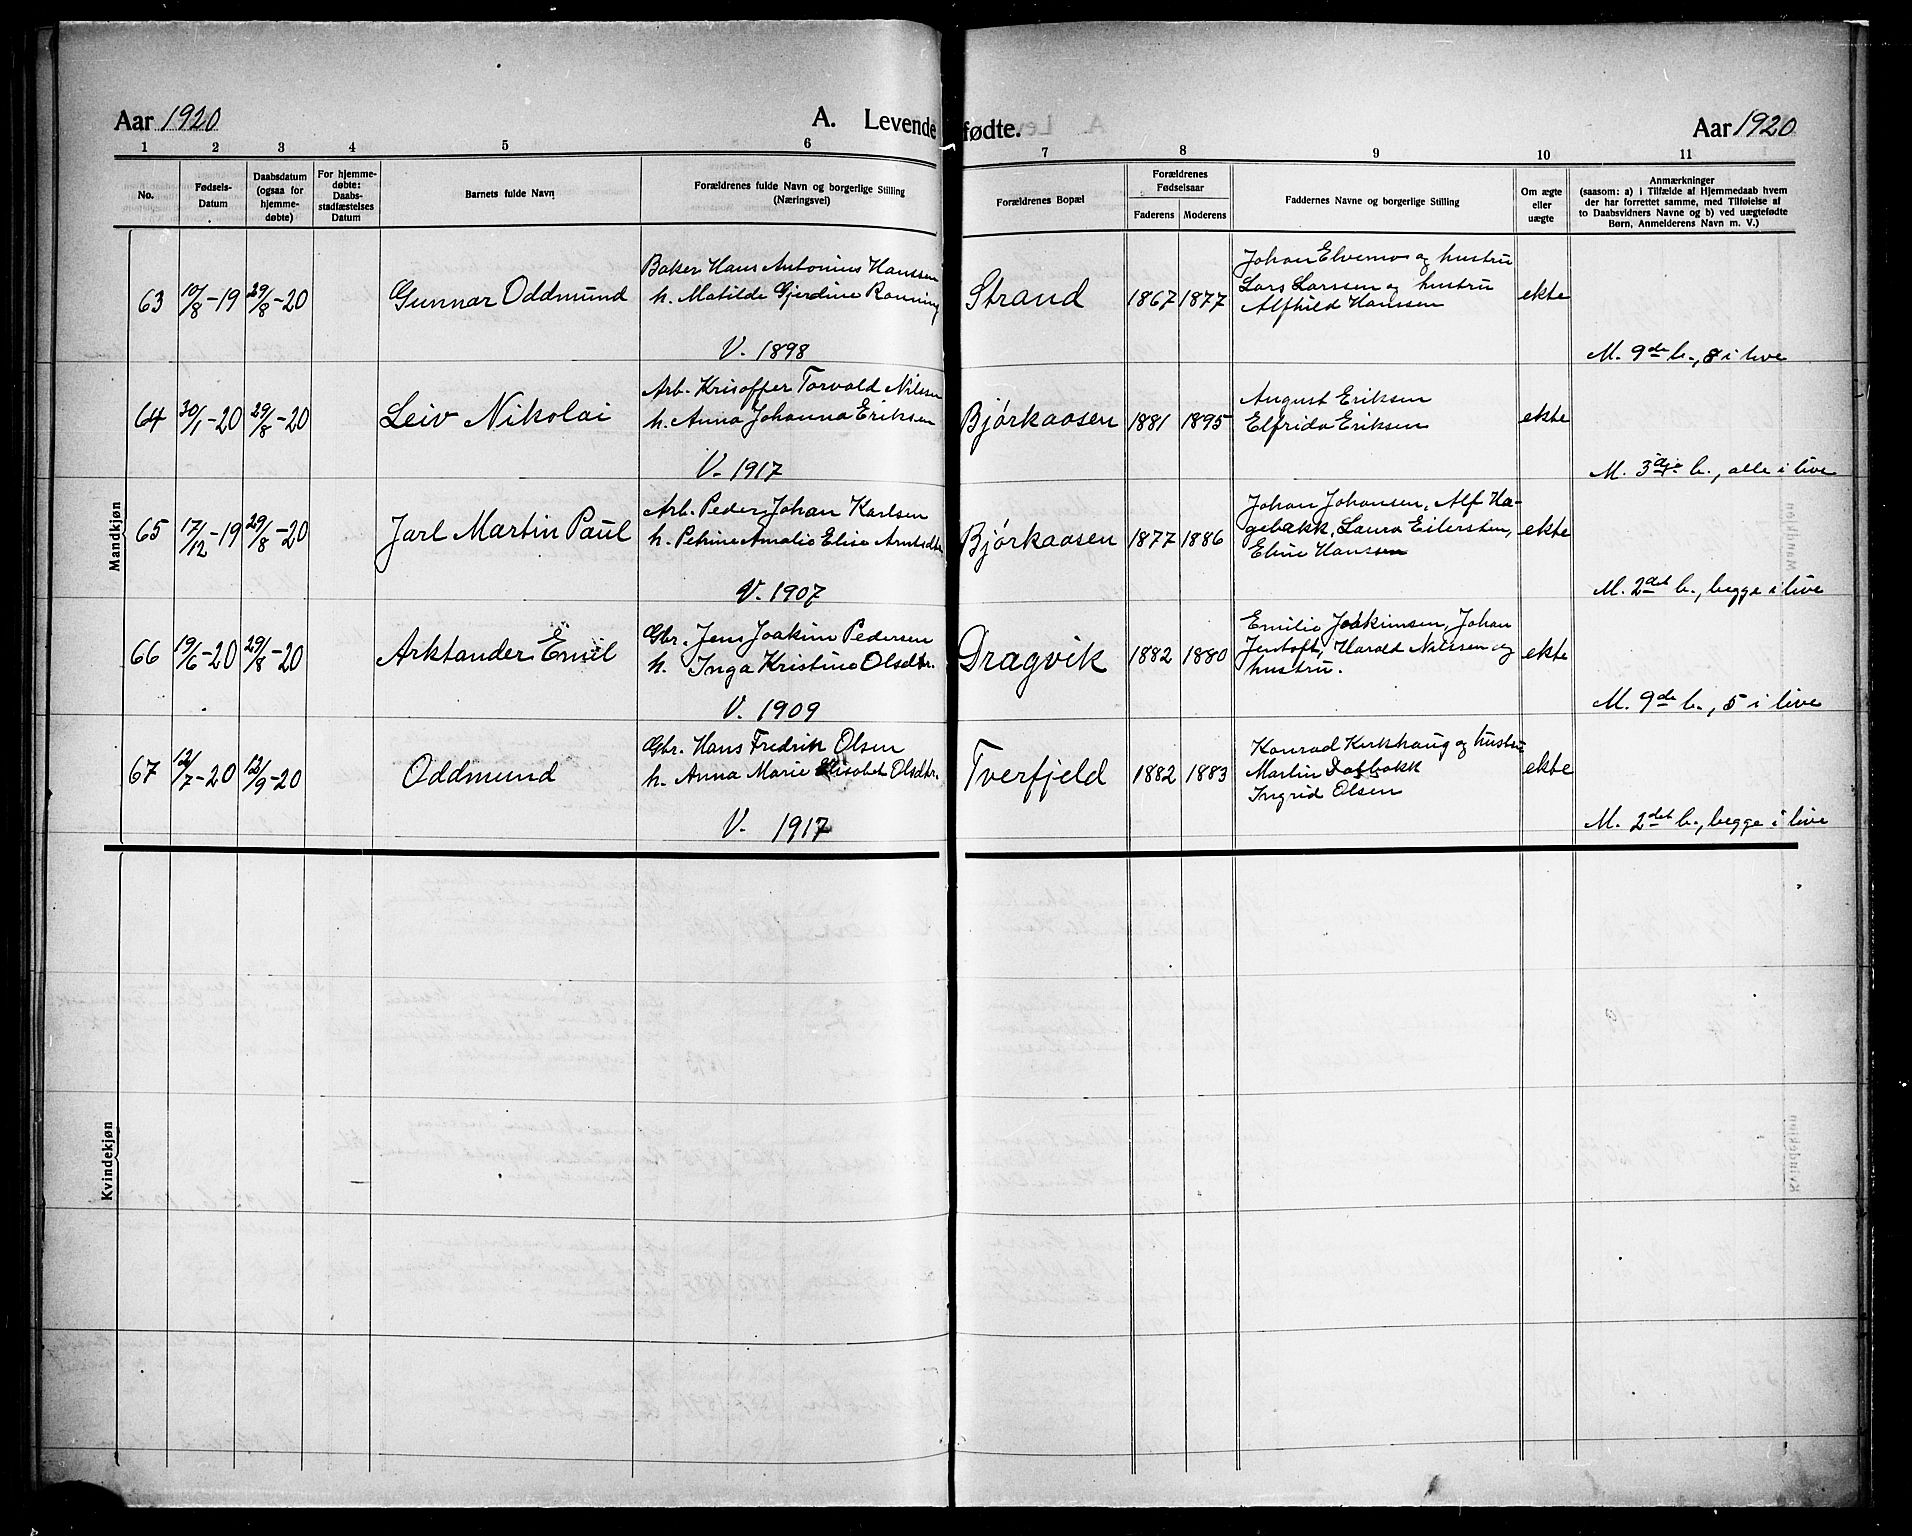 Aar 1920
A. Levende
fødte.
Aar 1920
1 2 3 4 5 6 7 8 9 10 11
No.
Fødsels-
Datum
Daabsdatum
(ogsaa for
hjemme-
døbte)
For hjemme-
døbte:
Daabs-
stadfæstelses
Datum
Barnets fulde Navn
Forældrenes fulde Navn og borgerlige Stilling
(Næringsvei)
Forældrenes Bopæl
Forældrenes
Fødselsaar
Faderens Moderens
Faddernes Navne og borgerlige Stilling
Om ægte
eller
uægte
Anmærkninger
(saasom: a) i Tilfælde af Hjemmedaab hvem
der har forrettet samme, med Tilføielse af
to Daabsvidners Navne og b) ved uægtefødte
Børn, Anmelderens Navn m. V.)
Mandkjøn
63 10/8-19 29/8-20 Gunnar Oddmund
Baker Hans Antonius Hanssen
h. Matilde Gjerdine Rønning
V. 1898
Strand 1867 1877
Johan Elvemo og hustru
Lars Larssen og hustru
Alfhild Hanssen
ekte
M. 9de b., 8 i live
64 30/1-20 29/8-20 Leiv Nikolai
Arb. Krisoffer Torvald Nilssen
h. Anna Johanna Eriksen
V. 1917
Bjørkaasen 1881 1895
August Eriksen
Elfrida Eriksen
ekte
M. 3dje b., alle i live
65 17/12-19 29/8-20 Jarl Martin Paul
Arb. Peder Johan Karlsen
h. Petrine Amalie Elise Arntsdtr
V. 1907
Bjørkaasen 1877 1886
Johan Johansen, Alf Ha-
gebakk, Laura Eilertsen,
Eline Hanssen
ekte
M. 2det b., begge i live
66 19/6-20 29/8-20 Arktander Emil
Gbr. Jens Joakim Pedersen
h. Inga Kristine Olsdtr.
V. 1909
Dragvik 1882 1880
Emilie Joakimsen, Johan
Jentoft, Harald Nilssen og
hustru.
ekte
M. 9de b., 5 i live
67 12/7-20 12/9-20 Oddmund
Gbr. Hans Fredrik Olsen
h. Anna Marie Elisabet Olsdtr.
V. 1917
Tverfjeld 1882 1883
Konrad Kirkhaug og hustru
Martin
Ingrid Olsen
ekte
M. 2det b., begge i live
Kvindekjøn